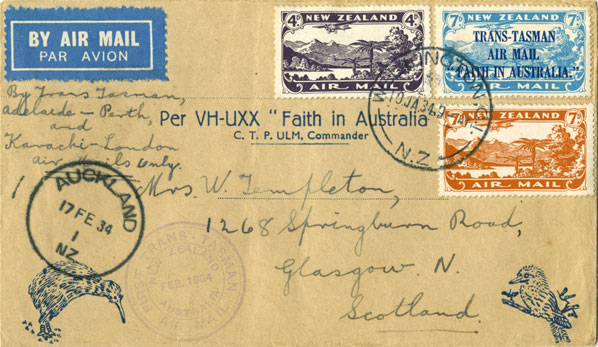 BY AIR MAIL
PAR AVION
4D
NEW ZEALAND
AIR MAIL
7D NEW ZEALAND 7D
TRANS-TASMAN
AIR MAIL
"FAITH IN AUSTRALIA."
NEW ZEALAND
7D
AIR MAIL
10 JA 34
N.Z.
By Trans Tasman,
Adelaide - Perth,
and
Karachi-London
air mails only.
Per VH-UXX "Faith in Australia"
C. T. P. ULM, Commander
AUCKLAND
17 FE 34
1
NZ
Mrs. W. Templeton,
1268 Springburn Road,
Glasgow. N.
Scotland.
FIRST TRANS-TASMAN
NEW ZEALAND
FEB. 1934
AUSTRALIA
AIR MAIL